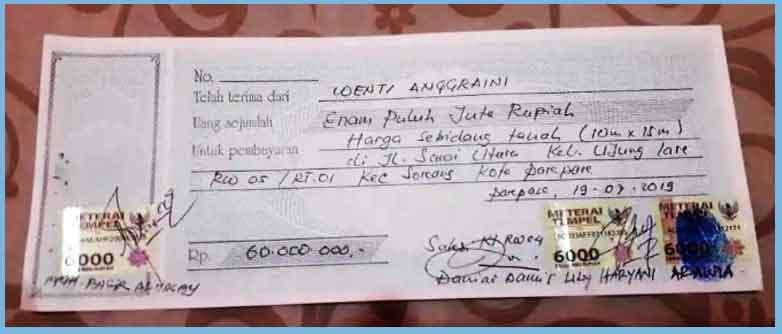 No.
Telah terima dari WENTI ANGGRAINI
Uang sejumlah Enam Puluh Juta Rupiah
Untuk pembayaran Harga Sebidang tanah (10m x 15m)
di Jl. Utara Kel. Ujung lare
RW 05 / RT.01 Kec Soreang Kota Parepare
parepare, 19-07-2019
METERAI TEMPEL
6000
METERAI TEMPEL
6000
METERAI TEMPEL
6000
Rp. 60.000.000,-
Saksi
Damis Lily HARYANI